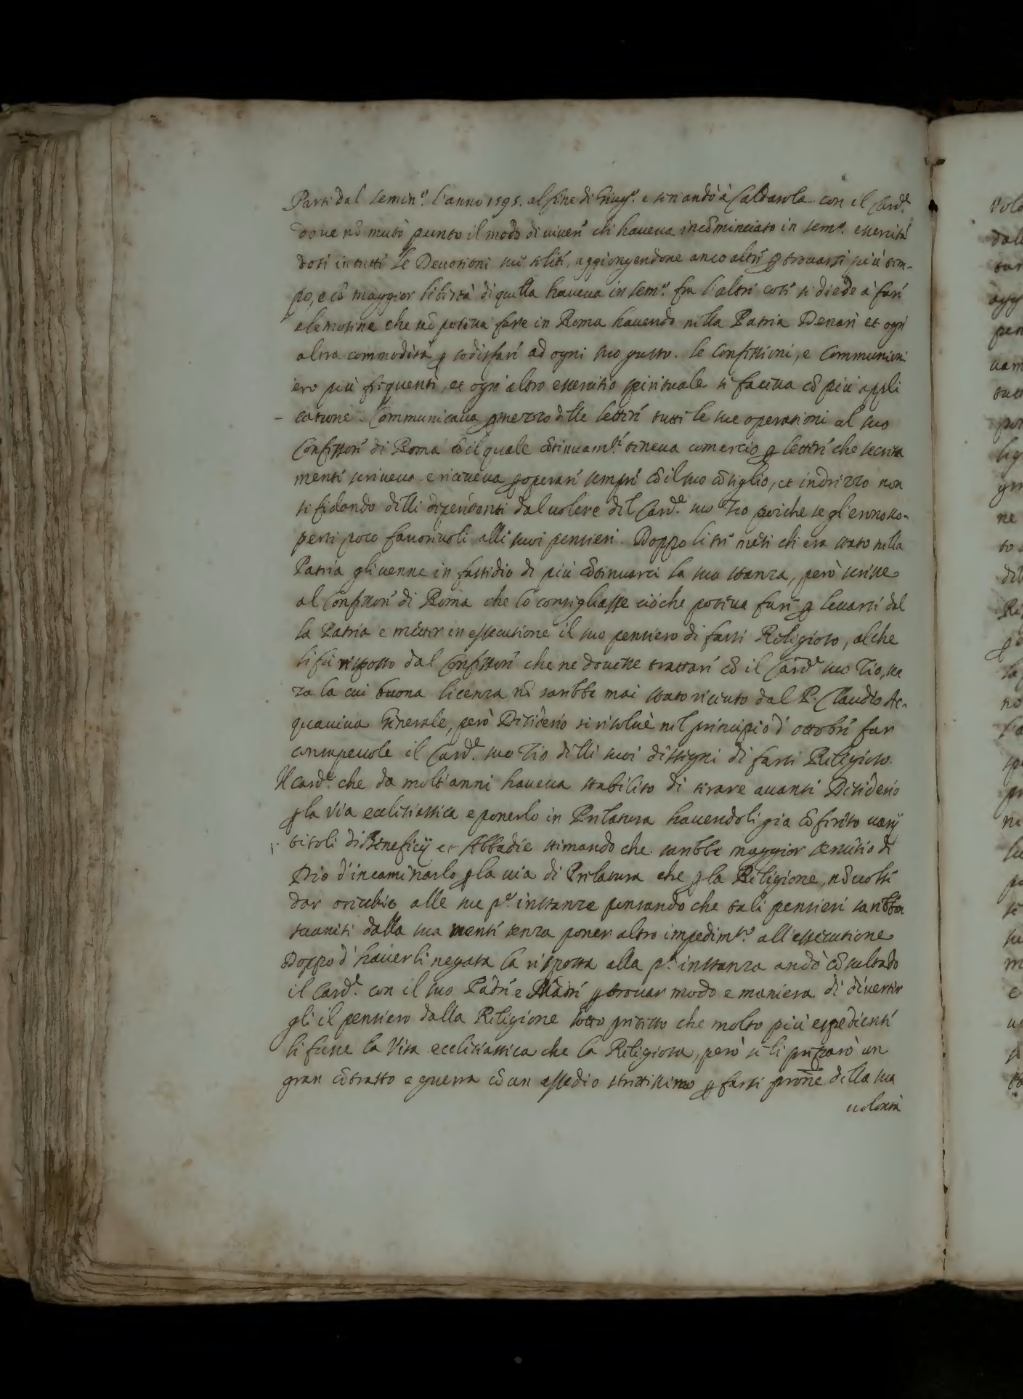 Parti dal semin.º l'anno 1595. al fine di Giug.º e se n'andò à Caldarola con il Card.le
dove nõ mutò punto il modo di viver chi haveva incõminciato in sem.º essercitã
dosi in tutti le Devotioni sue soliti, aggiongendone anco altri p trovarsi più tem-
po, e cõ maggior libertà di quella haveva in sem.º fra l'altri cose si diede à fari
elemosine che nõ poteva fare in Roma havendo nilla Patria Denari et ogni
altra commodità p sodisfari ad ogni suo gusto. le Confissioni, e Communioni
ero più frequenti, et ogni altro essercitio spirituale si faceva cõ più appli
catione. Communicava p mezzo dille lettiri tutti le sue operationi al suo
Confissori di Roma cõ il quale cõtinuam.te teneva comercio p lettiri che secreta
menti scriveva e riceveva p operari sempri cõ il suo cõsiglio, et indrizzo non
si fidando dilli dipendenti dal volere dil Card.le suo Zio poiche se gl'erano sco-
perti poco favorivoli alli suoi pensieri. Doppo li tri mesi chi era stato nella
Patria gli venne in fastidio di più cõtinuarci la sua stanza, però scrisse
al Confissori di Roma che lo consigliasse ciò che poteva fari p levarsi dal
la Patria e metter in essecutione il suo pensiero di farsi Religioso, al che
li fù risposto dal Confissori che ne dovesse trattari cõ il Card.le suo Zio, se
za la cui buona licenza nõ saribbe mai stato ricivuto dal P. Claudio Ac-
quaviva Generale, però Disiderio si risolvè nel principio d'ottobri far
consapevole il Card.le suo Zio dilli suoi dissigni di farsi Religioso.
Il Card.le che da molti anni haveva stabilito di tirare avanti Disiderio
p la via ecclisiastica e ponerlo in Prilatura havendoli gia cõfirito varij
titoli di Beneficij et Abbadie stimando che saribbe maggior servitio di
Dio d'incaminarlo p la via di Prilatura che p la Riligione, nõ volsi
dar orecchio alle sue p.e instanze pensando che tali pensieri saribbon
svaniti dalla sua menti senza poner altro impedim.to all'essecutione
Doppo d'haverli negata la risposta alla p.a instanza andò cõsultado
il Card.le con il suo Padri e Madri p trovar modo e maniera di divertir
gli il pensiero dalla Riligione sotto pritisto che molto più espedienti
li fusse la Vita ecclisiastica che la Riligiosa, però si li priparò un
gran cõtrasto e guerra cõ un assedio strittissimo p farsi prõne dilla sua
volontà